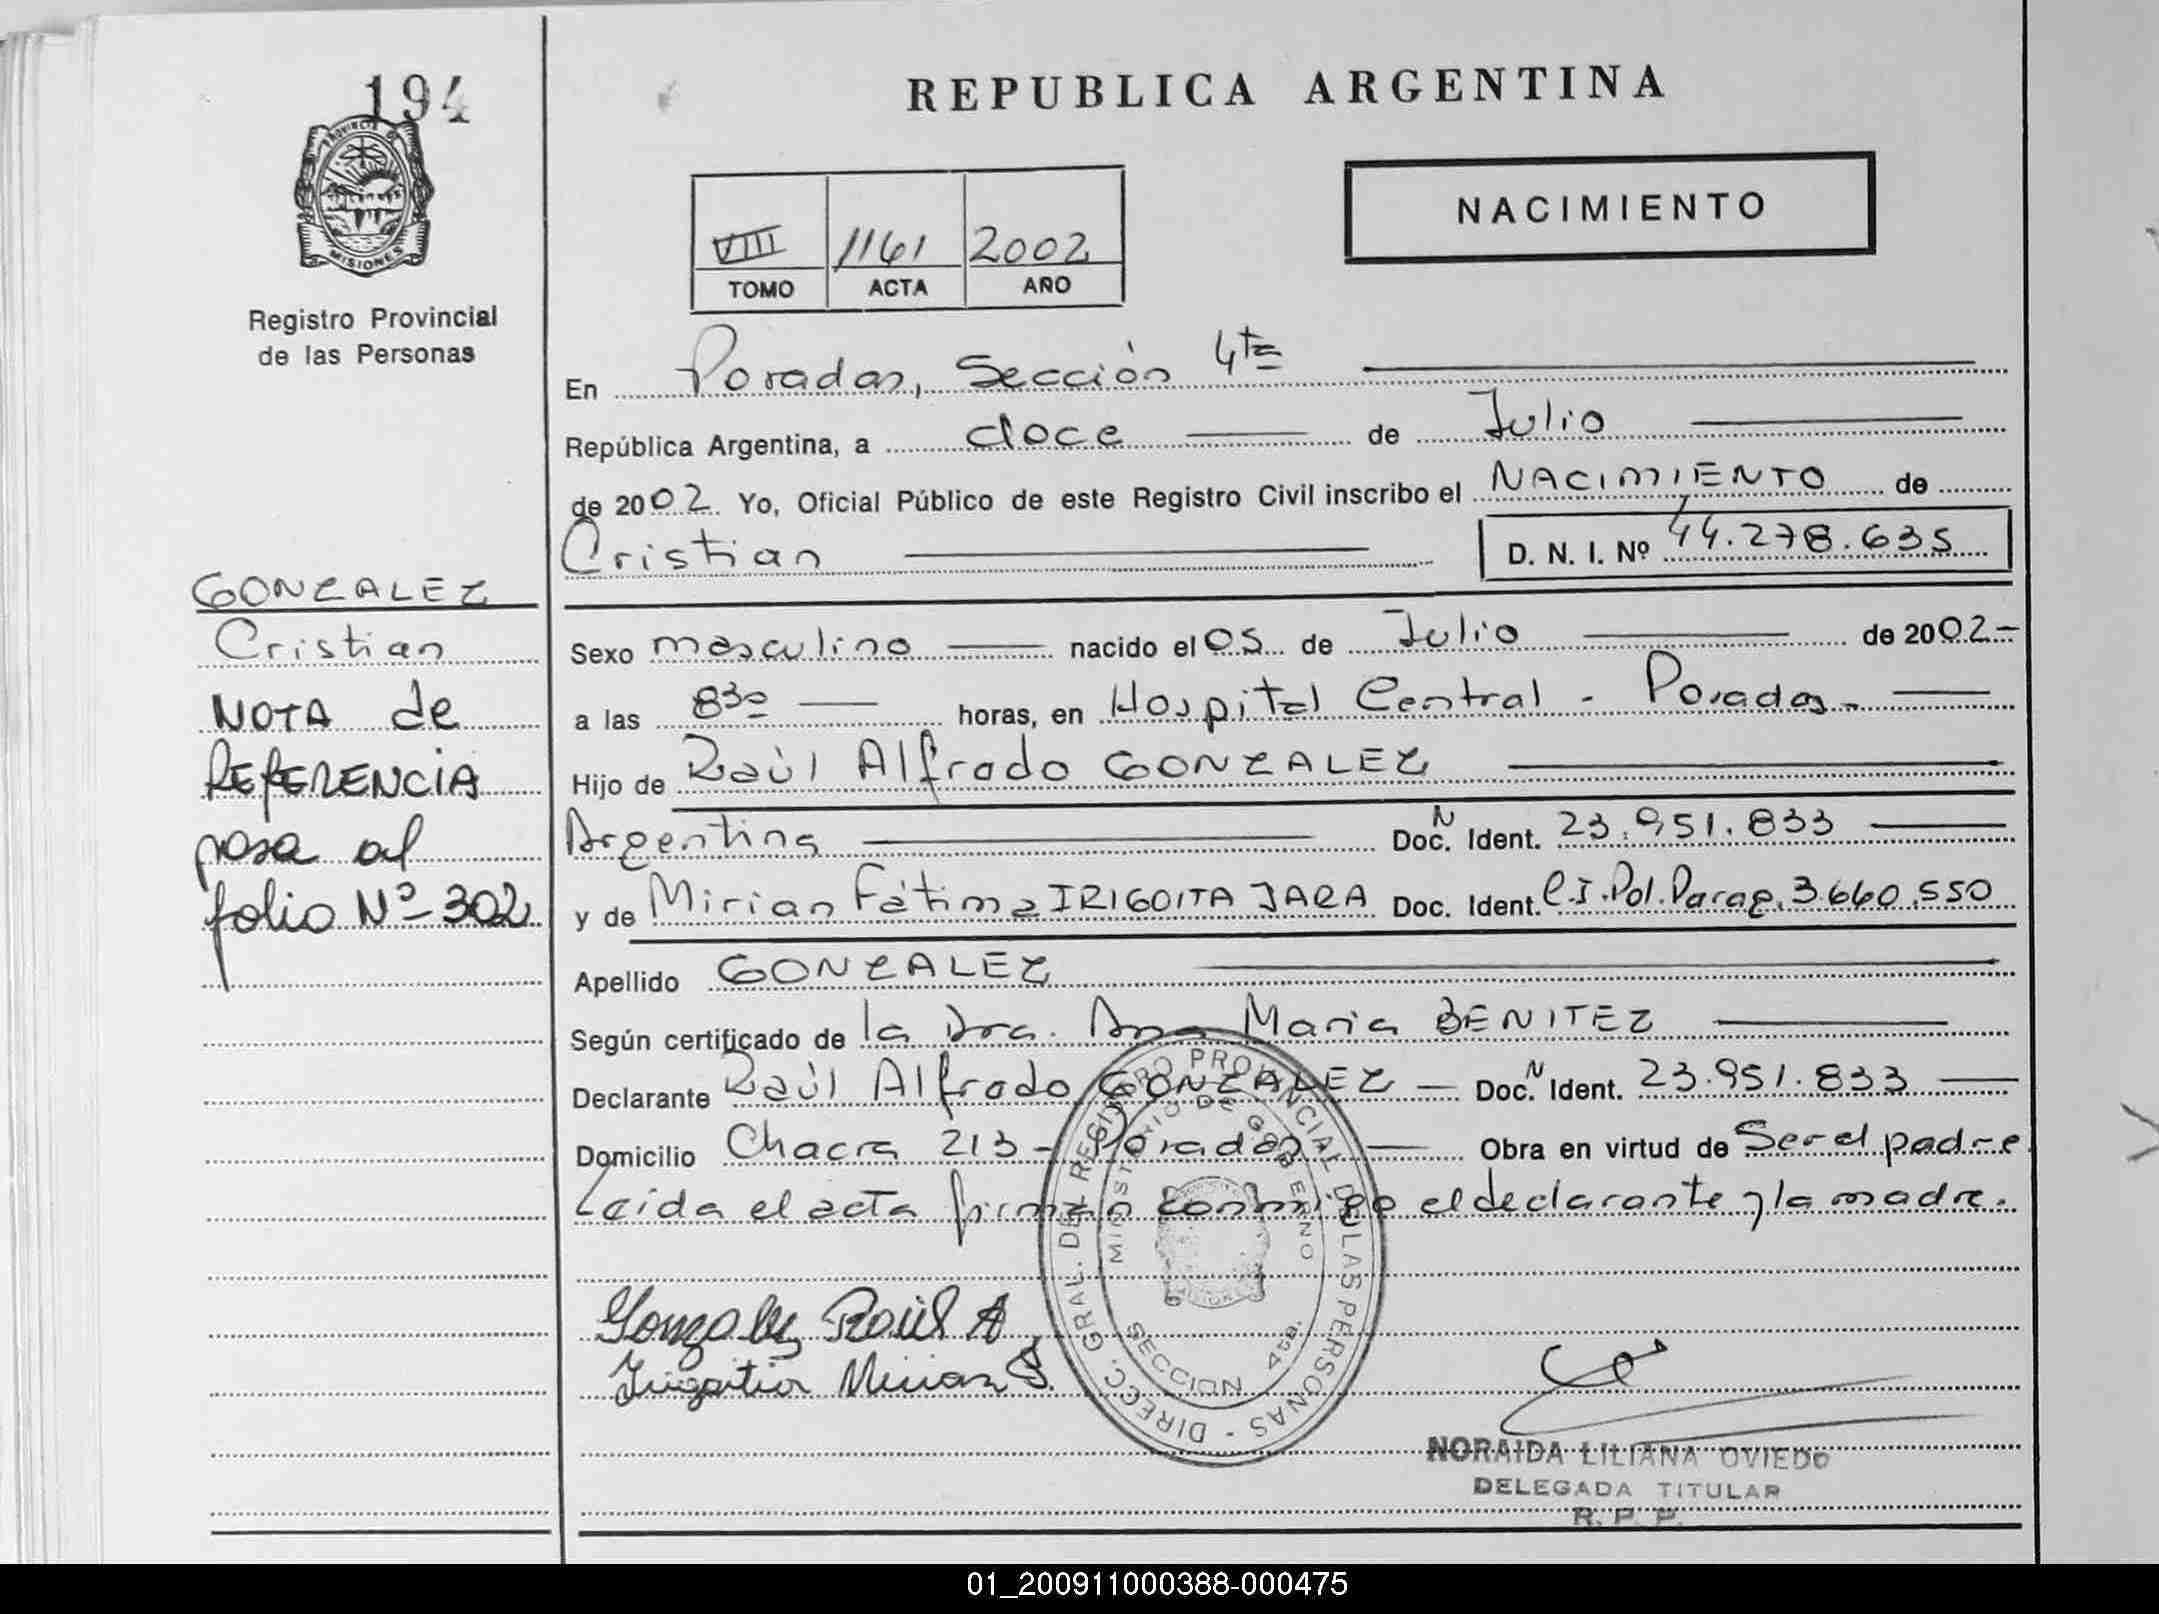 194
PROVINCIA DE
MISIONES
Registro Provincial
de las Personas
GONZALEZ
Cristian
NOTA de
REFERENCIA
pasa al
folio Nº 302
REPUBLICA ARGENTINA
NACIMIENTO
VIII 1161 2002
TOMO ACTA AÑO
En Posadas, Sección 4ta
República Argentina, a doce de Julio
de 2002 Yo, Oficial Público de este Registro Civil inscribo el NACIMIENTO de
Cristian D. N. I. Nº 44.278.635
Sexo masculino nacido el 05 de Julio de 2002-
a las 830 horas, en Hospital Central - Posadas-
Hijo de Raúl Alfredo GONZALEZ
Argentina Doc. N Ident. 23.951.833
y de Mirian Fátima IRIGOITA JARA Doc. Ident. C.I. Pol. Parag. 3.660.550
Apellido GONZALEZ
Según certificado de la Dra. Ana Maria BENITEZ
Declarante Raúl Alfredo GONZALEZ - Doc. N Ident. 23.951.833
Domicilio Chacra 213 - Posadas Obra en virtud de Ser el padre.
Leida el acta firman conmigo el declarante y la madre.
DIRECC. GRAL. DEL REGISTRO PROVINCIAL DE LAS PERSONAS -
MINISTERIO DE GOBIERNO
MISIONES
SECCION 4ta.
Gonzalez Raúl A
Irigoitia Mirian F.
NORAIDA LILIANA OVIEDO
DELEGADA TITULAR
R. P. P.
01_200911000388-000475